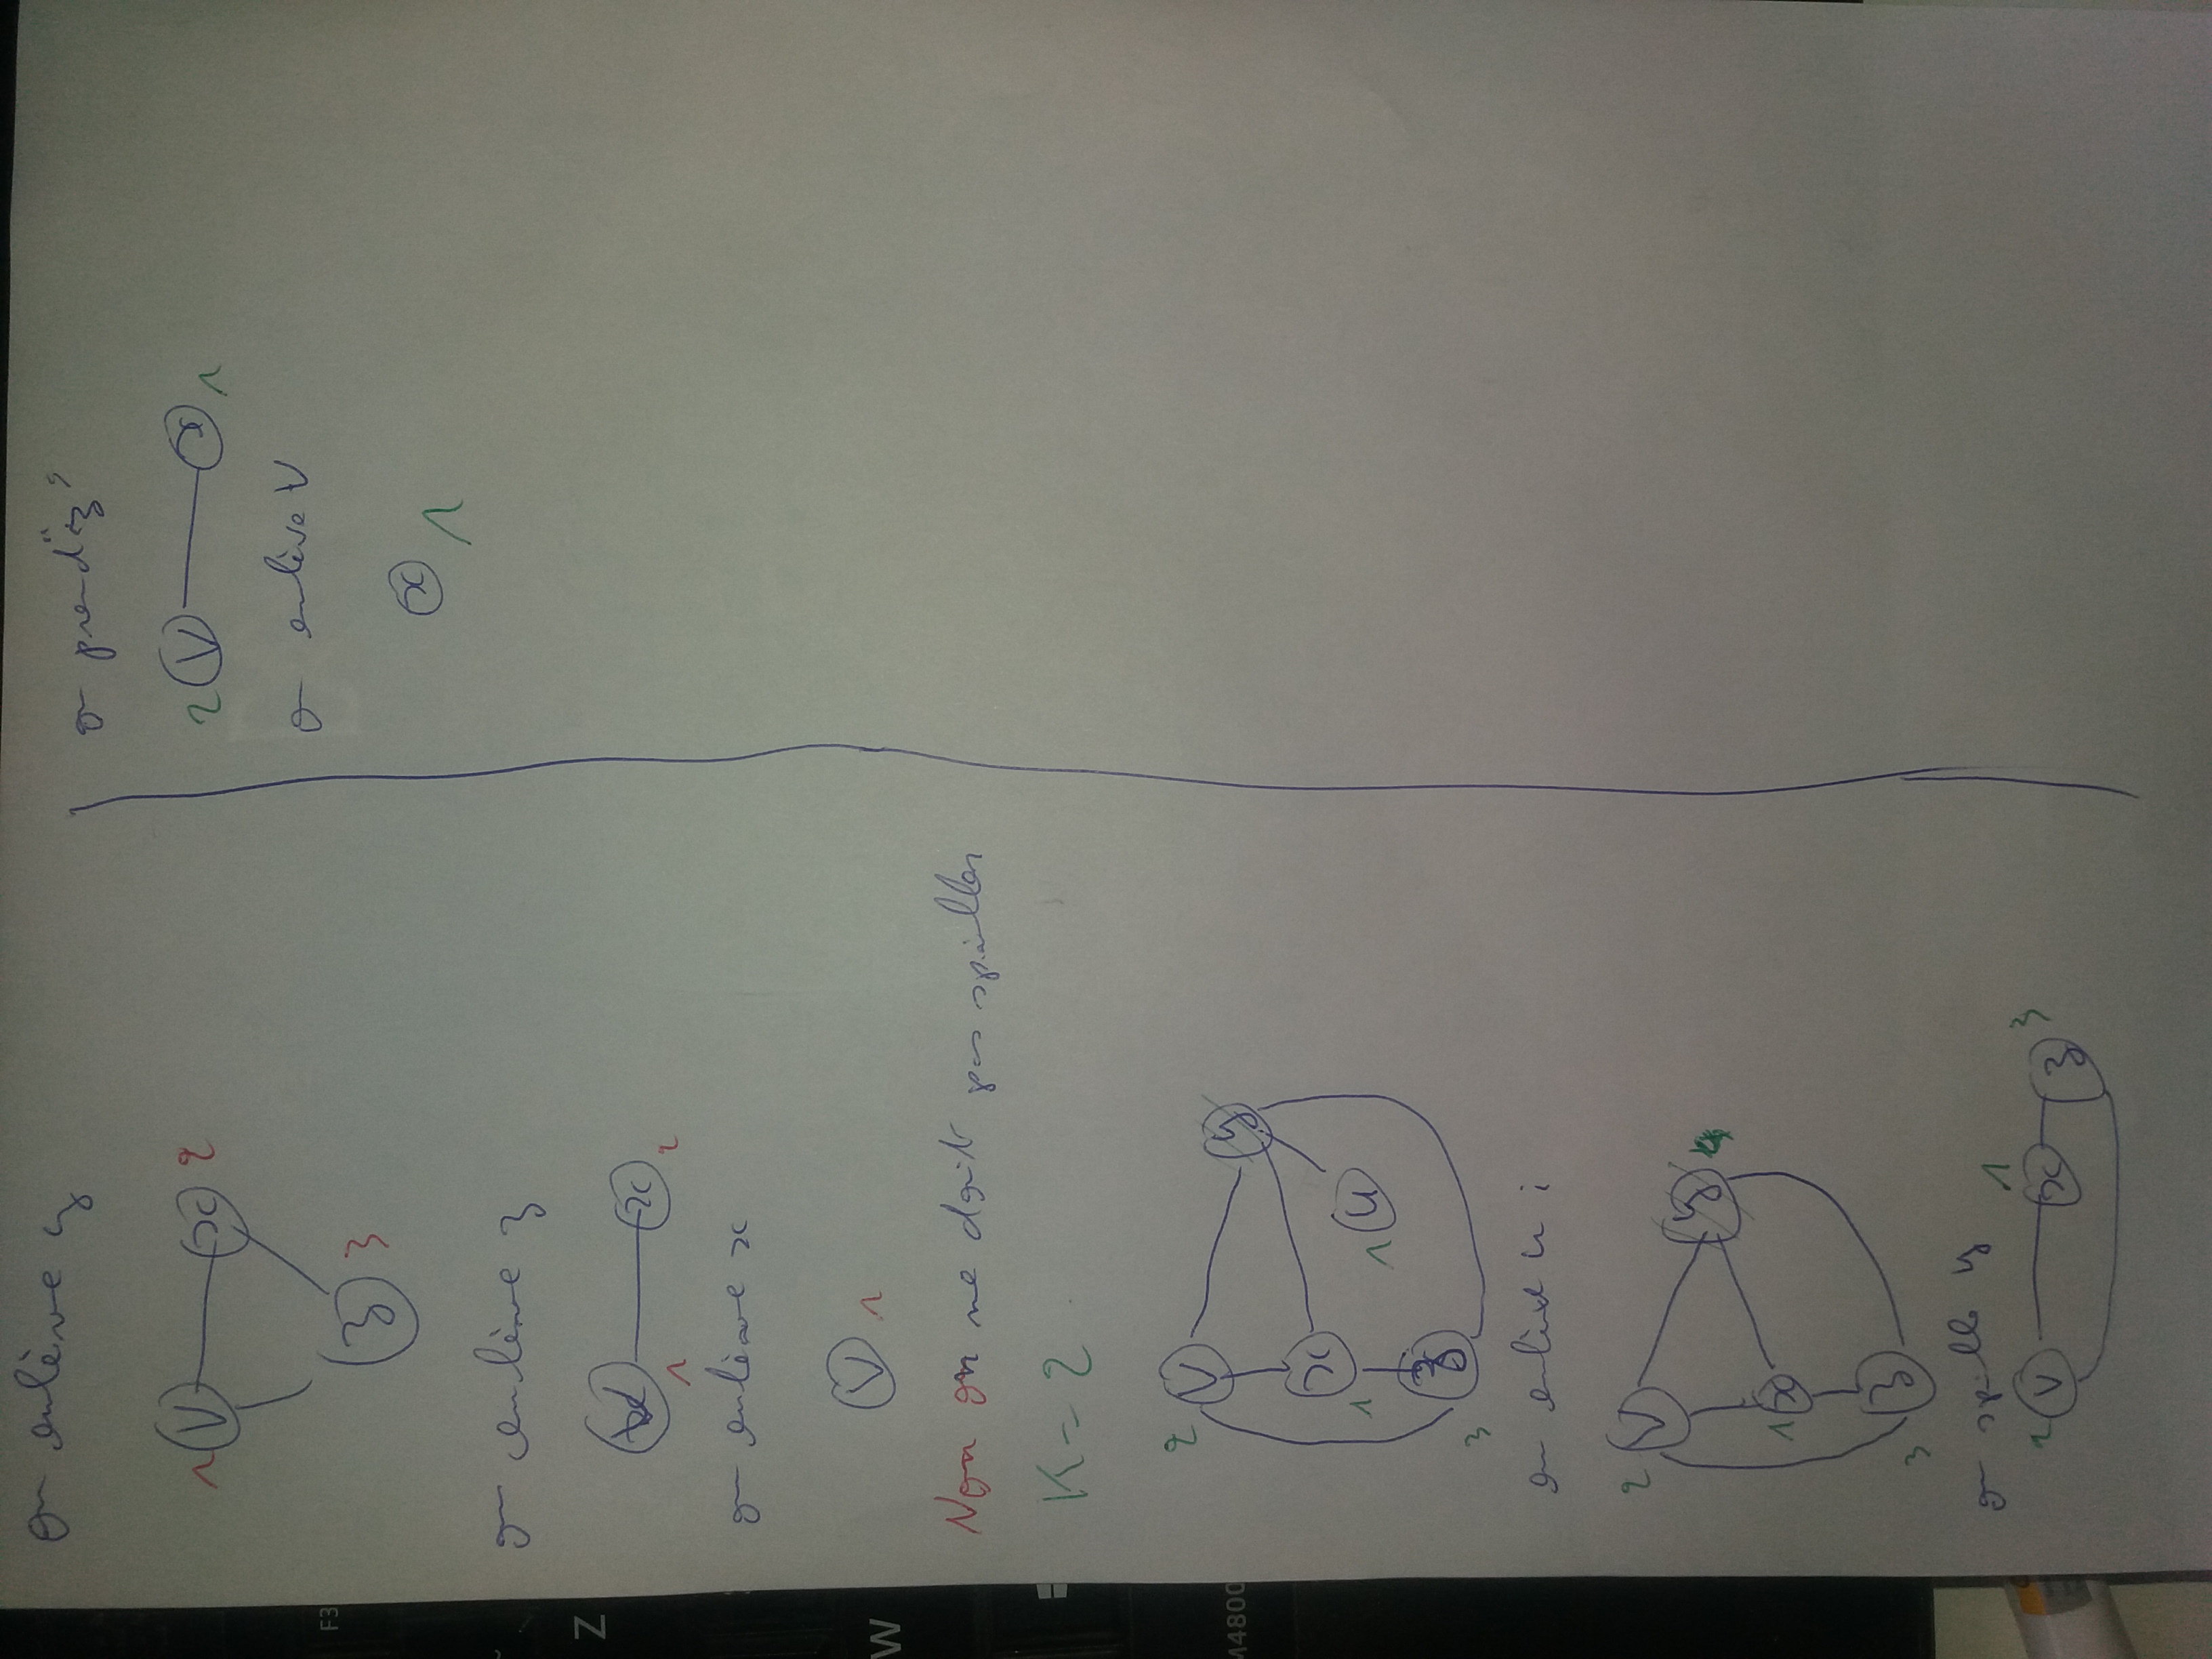 on enlève y
1 V x 2
z 3
on enlève z
V x
1 2
on enlève x
V 1
Non on ne doit pas spiller
K = 2
2 V y
x
1 1 u
z
3
on enlève u :
2 V y
1 x
z
3
on spille y
1
2 V x z 3
on prend "z"
2 V x 1
on enlève V
x 1
F3
Z
W
M4800